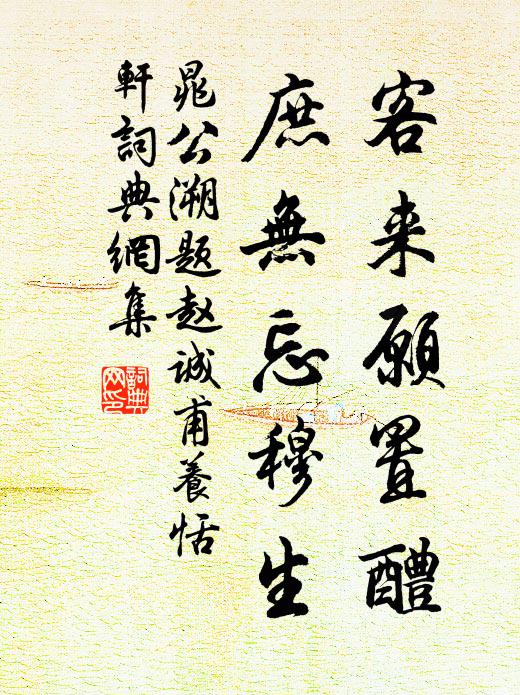 客来願置醴
庶無忘穆生
晁公溯题赵诚甫養恬
軒詞典網集
詞典
网印